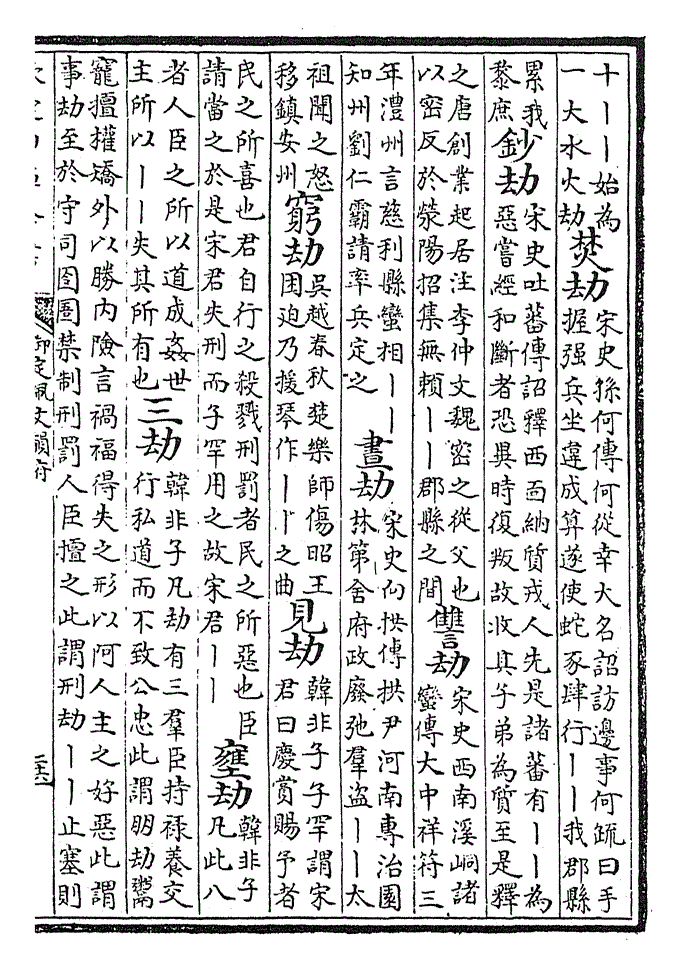 十｜｜｜始為
一大水火劫
焚劫
宋史孫何傳何從幸大名詔訪邊事何疏曰手
握强兵坐違成算遂使蛇豕肆行｜｜我郡縣
累我
黎庶
鈔劫
宋史吐蕃傳詔釋西面納質戎人先是諸蕃有｜｜為
惡嘗經和斷者恐異時復叛故收其子弟為質至是釋
之唐創業起居注李仲文魏密之從父也
以密反於滎陽招集無賴｜｜郡縣之間
讎劫
宋史西南溪峒諸
蠻傳大中祥符三
年澧州言慈利縣蠻相｜｜
知州劉仁霸請率兵定之
晝劫
宋史向拱傳拱尹河南專治園
林第舍府政廢弛羣盜｜｜太
祖聞之怒
移鎮安州
窮劫
吳越春秋楚樂師傷昭王
困迫乃援琴作｜｜之曲
見劫
韓非子子罕謂宋
君曰慶賞賜予者
民之所喜也君自行之殺戮刑罰者民之所惡也臣
請當之於是宋君失刑而子罕用之故宋君｜｜
壅劫
韓非子
凡此八
者人臣之所以道成姦世
主所以｜｜失其所有也
三劫
韓非子凡劫有三羣臣持祿養交
行私道而不致公忠此謂明劫鬻
寵擅權矯外以勝内險言禍福得失之形以阿人主之好惡此謂
事劫至於守司囹圄禁制刑罰人臣擅之此謂刑劫｜｜止塞則
御定佩文韻府